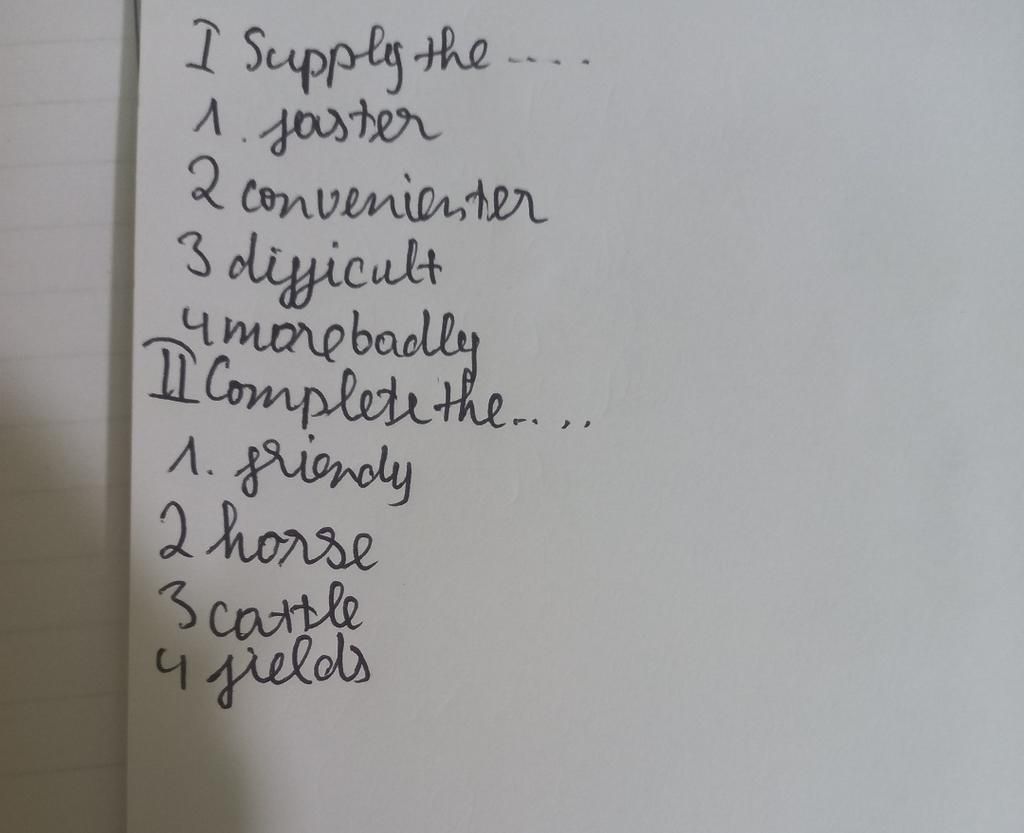 I Supply the ....
1. faster
2 convenienter
3 difficult
4 more badly
II Complete the.. ..
1. friendy
2 horse
3 cattle
4 fields